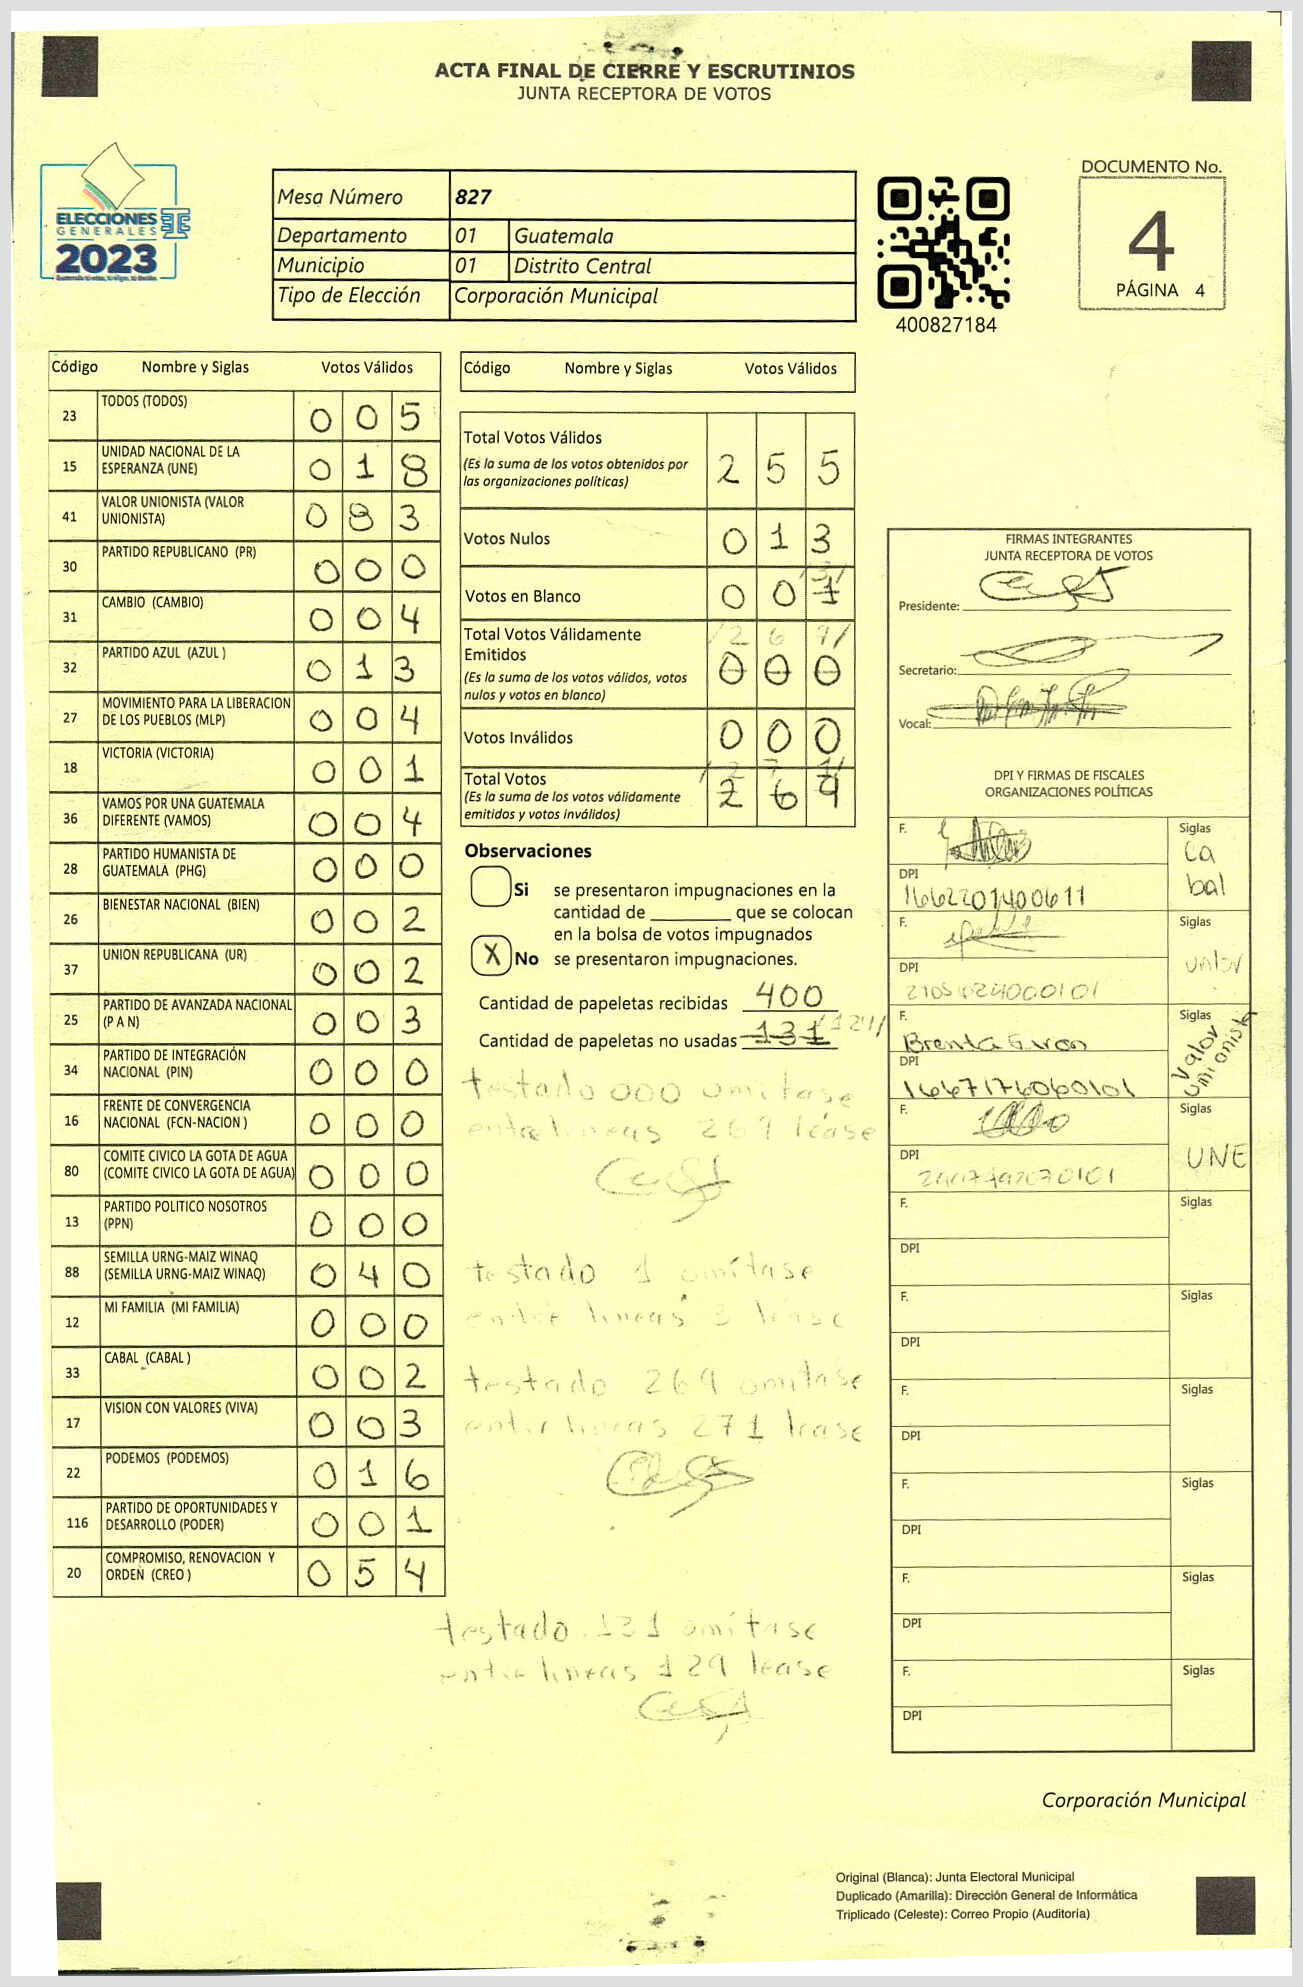 ACTA FINAL DE CIERRE Y ESCRUTINIOS
JUNTA RECEPTORA DE VOTOS
ELECCIONES
GENERALES
2023
Mesa Número 827
Departamento 01 Guatemala
Municipio 01 Distrito Central
Tipo de Elección Corporación Municipal
400827184
DOCUMENTO No.
4
PÁGINA 4
Código Nombre y Siglas Votos Válidos
23 TODOS (TODOS) 0 0 5
15 UNIDAD NACIONAL DE LA ESPERANZA (UNE) 0 1 8
41 VALOR UNIONISTA (VALOR UNIONISTA) 0 8 3
30 PARTIDO REPUBLICANO (PR) 0 0 0
31 CAMBIO (CAMBIO) 0 0 4
32 PARTIDO AZUL (AZUL ) 0 1 3
27 MOVIMIENTO PARA LA LIBERACION DE LOS PUEBLOS (MLP) 0 0 4
18 VICTORIA (VICTORIA) 0 0 1
36 VAMOS POR UNA GUATEMALA DIFERENTE (VAMOS) 0 0 4
28 PARTIDO HUMANISTA DE GUATEMALA (PHG) 0 0 0
26 BIENESTAR NACIONAL (BIEN) 0 0 2
37 UNION REPUBLICANA (UR) 0 0 2
25 PARTIDO DE AVANZADA NACIONAL (P A N) 0 0 3
34 PARTIDO DE INTEGRACIÓN NACIONAL (PIN) 0 0 0
16 FRENTE DE CONVERGENCIA NACIONAL (FCN-NACION ) 0 0 0
80 COMITE CIVICO LA GOTA DE AGUA (COMITE CIVICO LA GOTA DE AGUA) 0 0 0
13 PARTIDO POLITICO NOSOTROS (PPN) 0 0 0
88 SEMILLA URNG-MAIZ WINAQ (SEMILLA URNG-MAIZ WINAQ) 0 4 0
12 MI FAMILIA (MI FAMILIA) 0 0 0
33 CABAL (CABAL ) 0 0 2
17 VISION CON VALORES (VIVA) 0 0 3
22 PODEMOS (PODEMOS) 0 1 6
116 PARTIDO DE OPORTUNIDADES Y DESARROLLO (PODER) 0 0 1
20 COMPROMISO, RENOVACION Y ORDEN (CREO ) 0 5 4
Código Nombre y Siglas Votos Válidos
Total Votos Válidos 2 5 5
(Es la suma de los votos obtenidos por
las organizaciones políticas)
Votos Nulos 0 1 3
/3/
Votos en Blanco 0 0 1
Total Votos Válidamente /2 6 9/
Emitidos 0 0 0
(Es la suma de los votos válidos, votos
nulos y votos en blanco)
Votos Inválidos 0 0 0
/2 7 1/
Total Votos 2 6 9
(Es la suma de los votos válidamente
emitidos y votos inválidos)
Observaciones
Si se presentaron impugnaciones en la
cantidad de ________ que se colocan
en la bolsa de votos impugnados
X No se presentaron impugnaciones.
Cantidad de papeletas recibidas 400
Cantidad de papeletas no usadas 131 /129/
testado 000 omitase
entre lineas 269 lease
testado 1 omítase
entre lineas 3 lease
testado 269 omitase
entre lineas 271 lease
testado 131 omítase
entre lineas 129 lease
FIRMAS INTEGRANTES
JUNTA RECEPTORA DE VOTOS
Presidente:
Secretario:
Vocal:
DPI Y FIRMAS DE FISCALES
ORGANIZACIONES POLÍTICAS
F. Siglas
Ca
bal
DPI
1662201400611
F. Siglas
valor
DPI
F. Siglas
Valor
unionista
DPI
1667176060101
F. Siglas
UNE
DPI
F. Siglas
DPI
F. Siglas
DPI
F. Siglas
DPI
F. Siglas
DPI
F. Siglas
DPI
F. Siglas
DPI
Corporación Municipal
Original (Blanca): Junta Electoral Municipal
Duplicado (Amarilla): Dirección General de Informática
Triplicado (Celeste): Correo Propio (Auditoría)